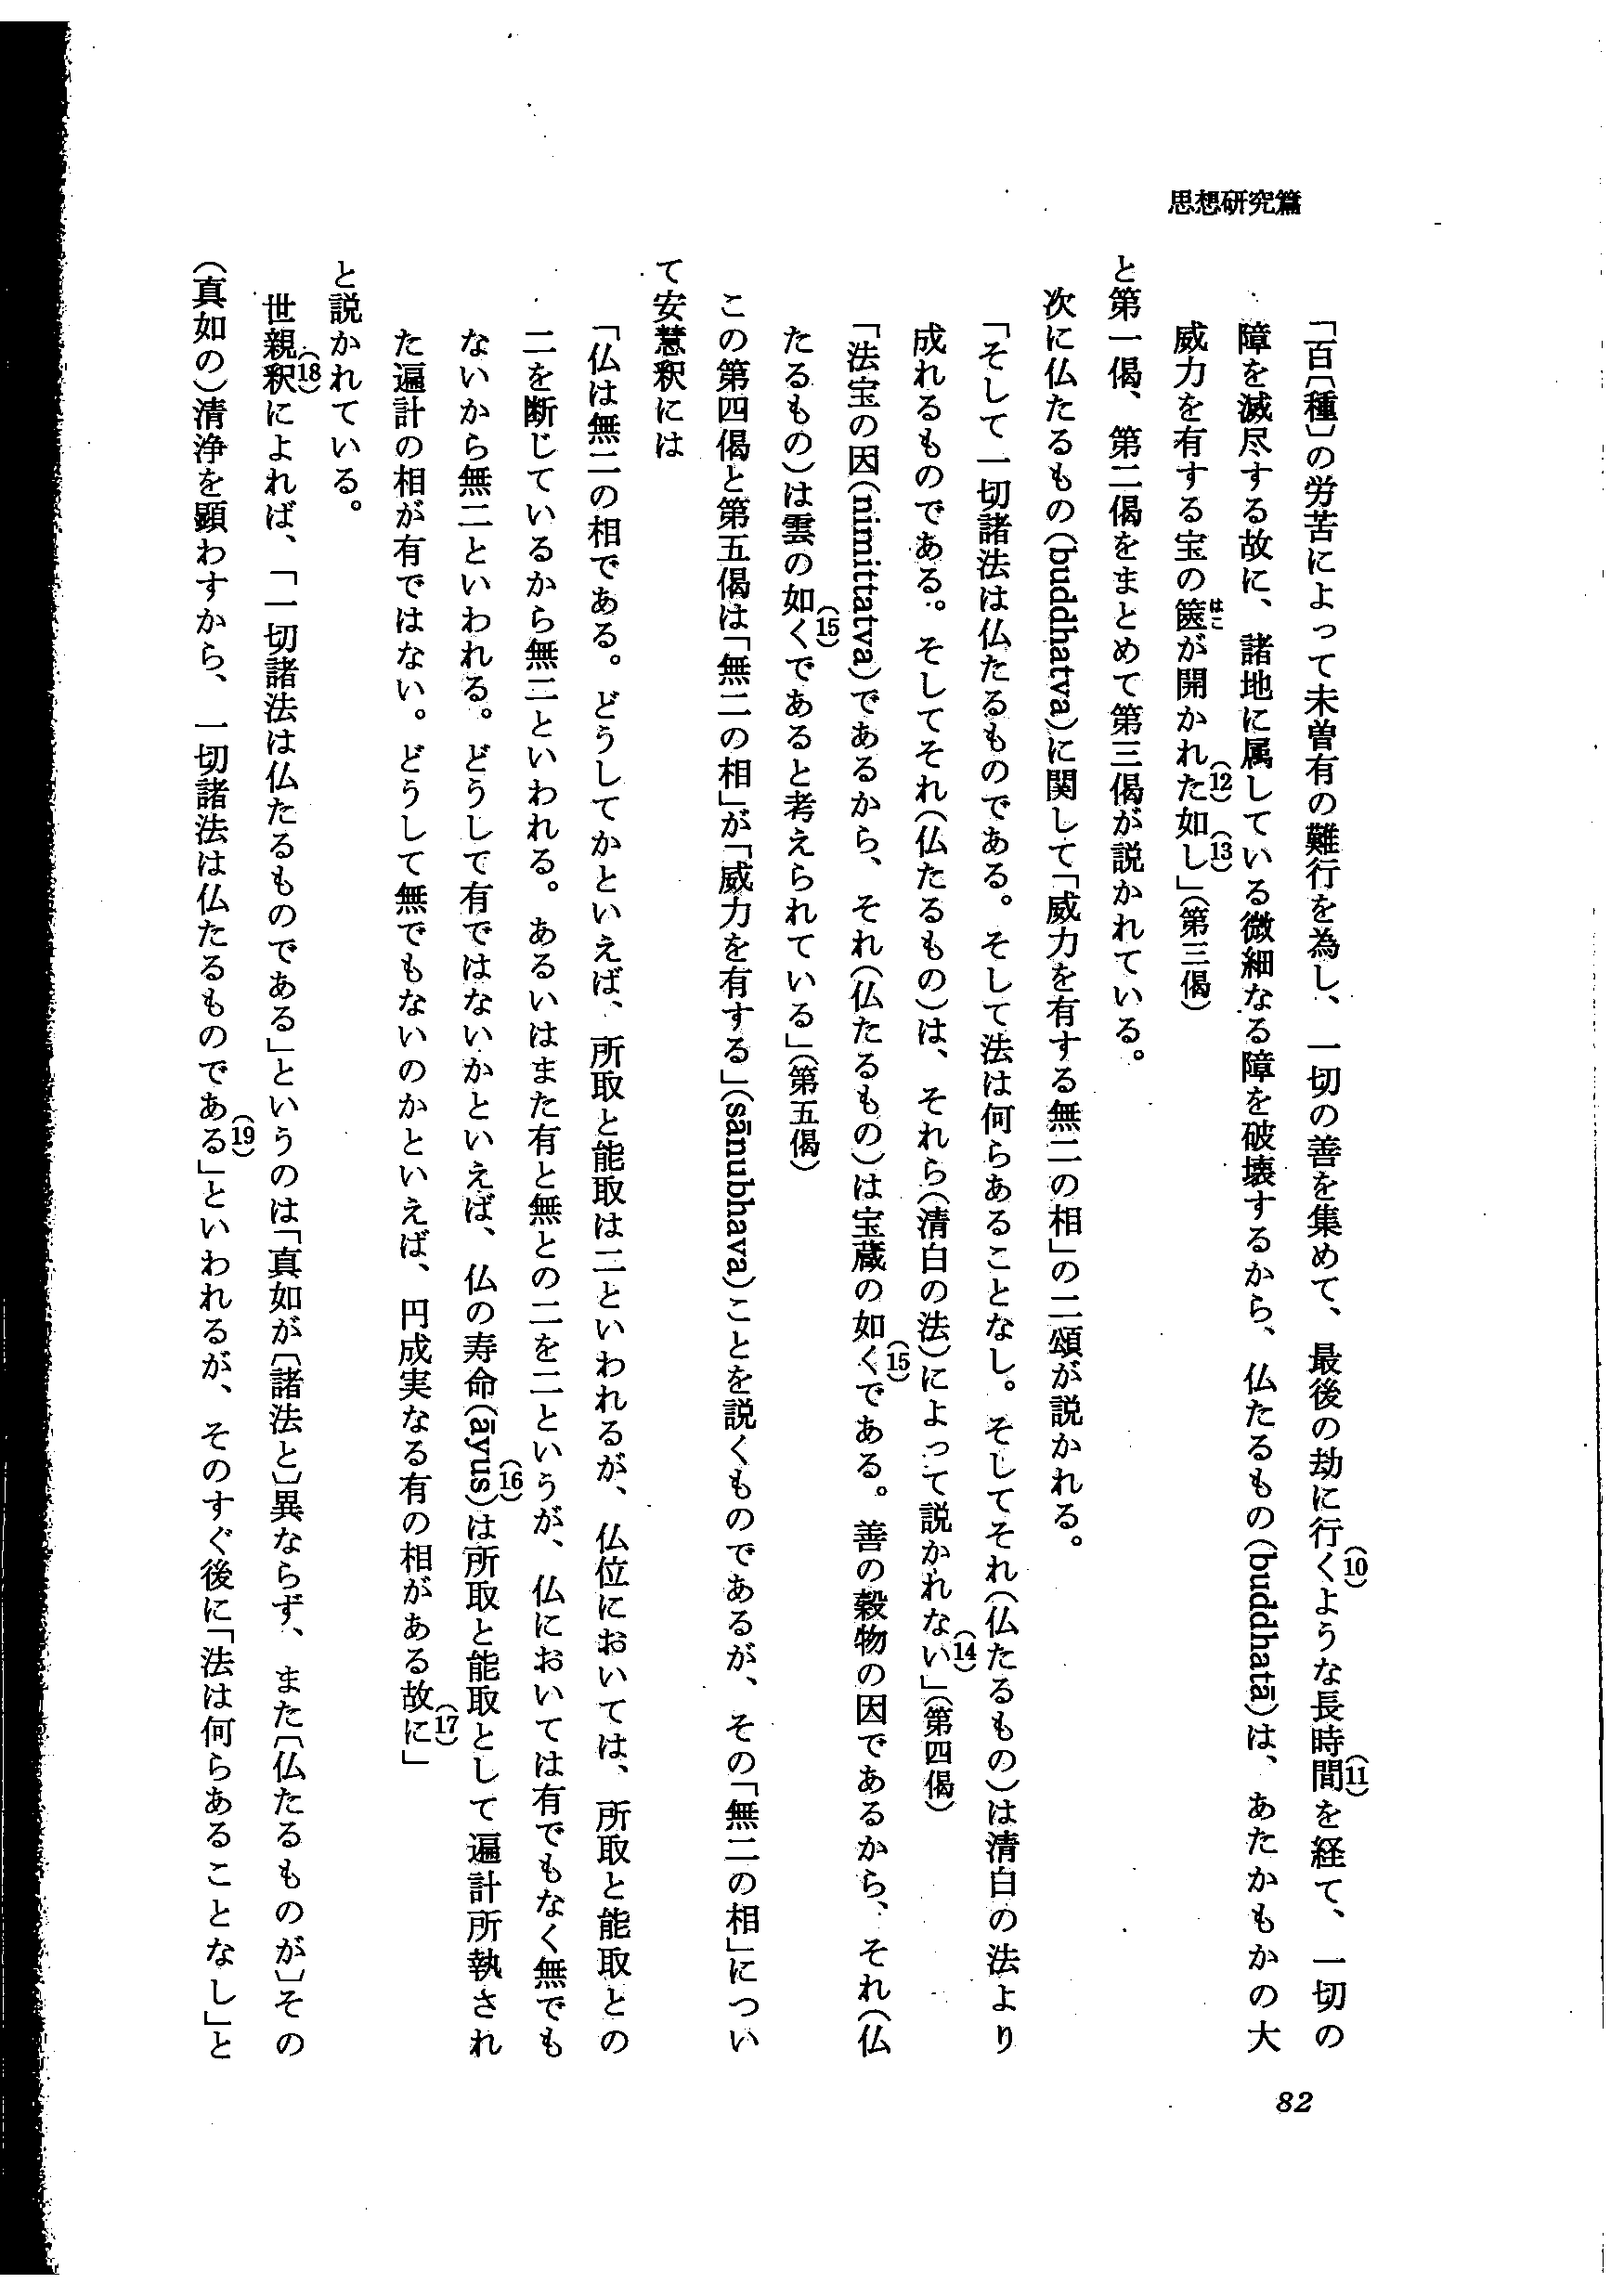 思想研究篇
「百〔種〕の労苦によって未曽有の難行を為し、一切の善を集めて、最後の劫に行く(10)ような長時間(11)を経て、一切の
障を滅尽する故に、諸地に属している微細なる障を破壊するから、仏たるもの(buddhatā)は、あたかもかの大
威力を有する宝の篋(はこ)が開かれた(12)如し(13)」(第三偈)
と第一偈、第二偈をまとめて第三偈が説かれている。
次に仏たるもの(buddhatva)に関して「威力を有する無二の相」の二頌が説かれる。
「そして一切諸法は仏たるものである。そして法は何らあることなし。そしてそれ(仏たるもの)は清白の法より
成れるものである。そしてそれ(仏たるもの)は、それら(清白の法)によって説かれない(14)」(第四偈)
「法宝の因(nimittatva)であるから、それ(仏たるもの)は宝蔵の如く(15)である。善の穀物の因であるから、それ(仏
たるもの)は雲の如く(15)であると考えられている」(第五偈)
この第四偈と第五偈は「無二の相」が「威力を有する」(sānubhava)ことを説くものであるが、その「無二の相」につい
て安慧釈には
「仏は無二の相である。どうしてかといえば、所取と能取は二といわれるが、仏位においては、所取と能取との
二を断じているから無二といわれる。あるいはまた有と無との二を二というが、仏においては有でもなく無でも
ないから無二といわれる。どうして有ではないかといえば、仏の寿命(āyus)(16)は所取と能取として遍計所執され
た遍計の相が有ではない。どうして無でもないのかといえば、円成実なる有の相がある故に(17)」
と説かれている。
世親釈(18)によれば、「一切諸法は仏たるものである」というのは「真如が〔諸法と〕異ならず、また〔仏たるものが〕その
(真如の)清浄を顕わすから、一切諸法は仏たるものである(19)」といわれるが、そのすぐ後に「法は何らあることなし」と
82